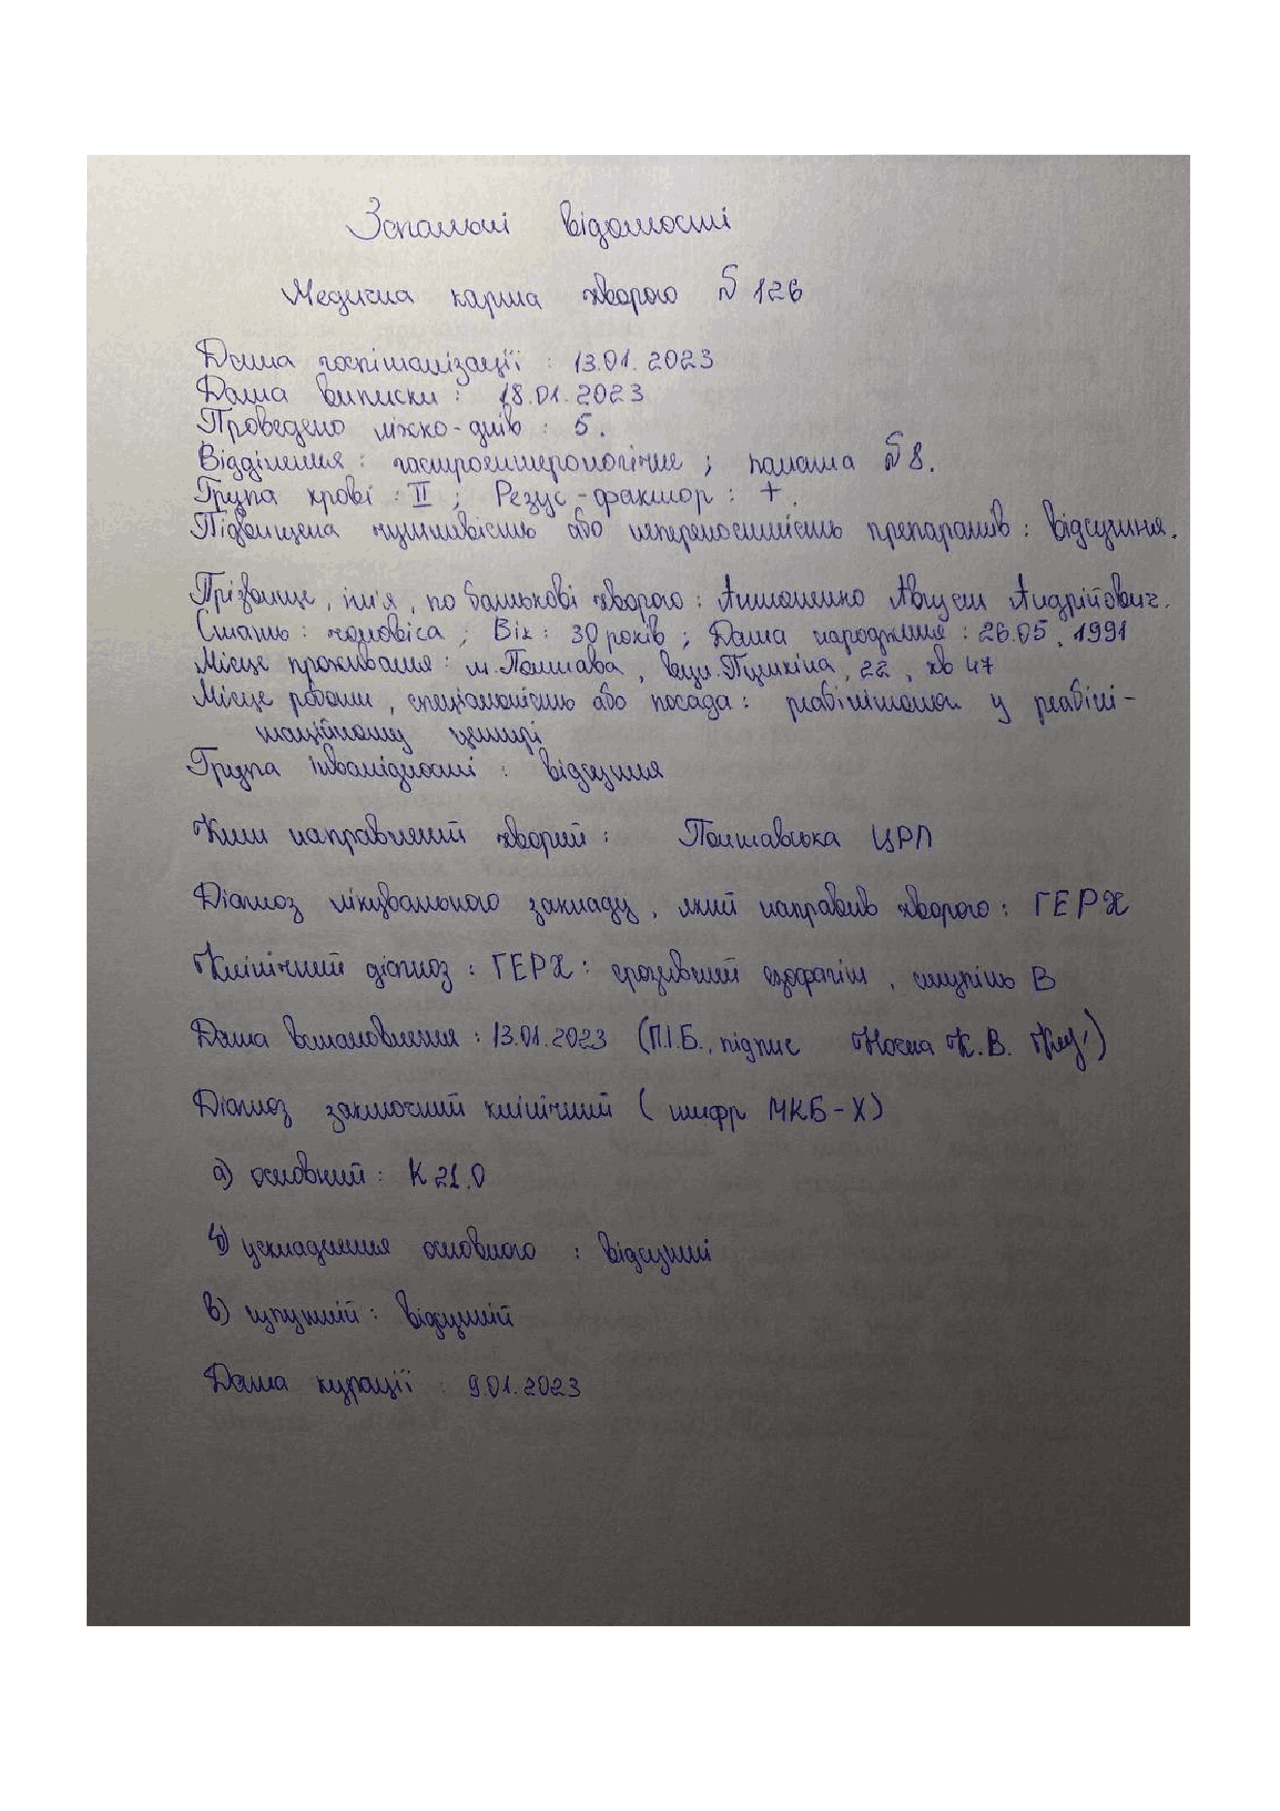 Загальні відомості
Медична карта хворого № 126
Дата госпіталізації : 13.01. 2023
Дата виписки : 18.01.2023
Проведено ліжко-днів : 5.
Відділення : гастроентерологічне ; палата № 8.
Група крові : II ; Резус-фактор : +.
Підвищена чутливість або непереносимість препаратів : відсутня.
Прізвище, ім'я, по батькові хворого : Антоненко Август Андрійович.
Стать : чоловіча ; Вік : 30 років ; Дата народження : 26.05. 1991
Місце проживання : м. Полтава, вул. Пушкіна, 22, кв 47
Місце роботи, спеціальність або посада : реабілітолог у реабілі-
таційному центрі
Група інвалідності : відсутня
Ким направлений хворий : Полтавська ЦРЛ
Діагноз лікувального закладу, який направив хворого : ГЕРХ
Клінічний діагноз : ГЕРХ : ерозивний езофагіт, ступінь В
Дата встановлення : 13.01.2023 (П.І.Б., підпис К.В.)
Діагноз заключний клінічний ( шифр МКБ-Х)
а) основний : К 21.0
б) ускладнення основного : відсутні
в) супутній : відсутній
Дата курації : 9.01.2023